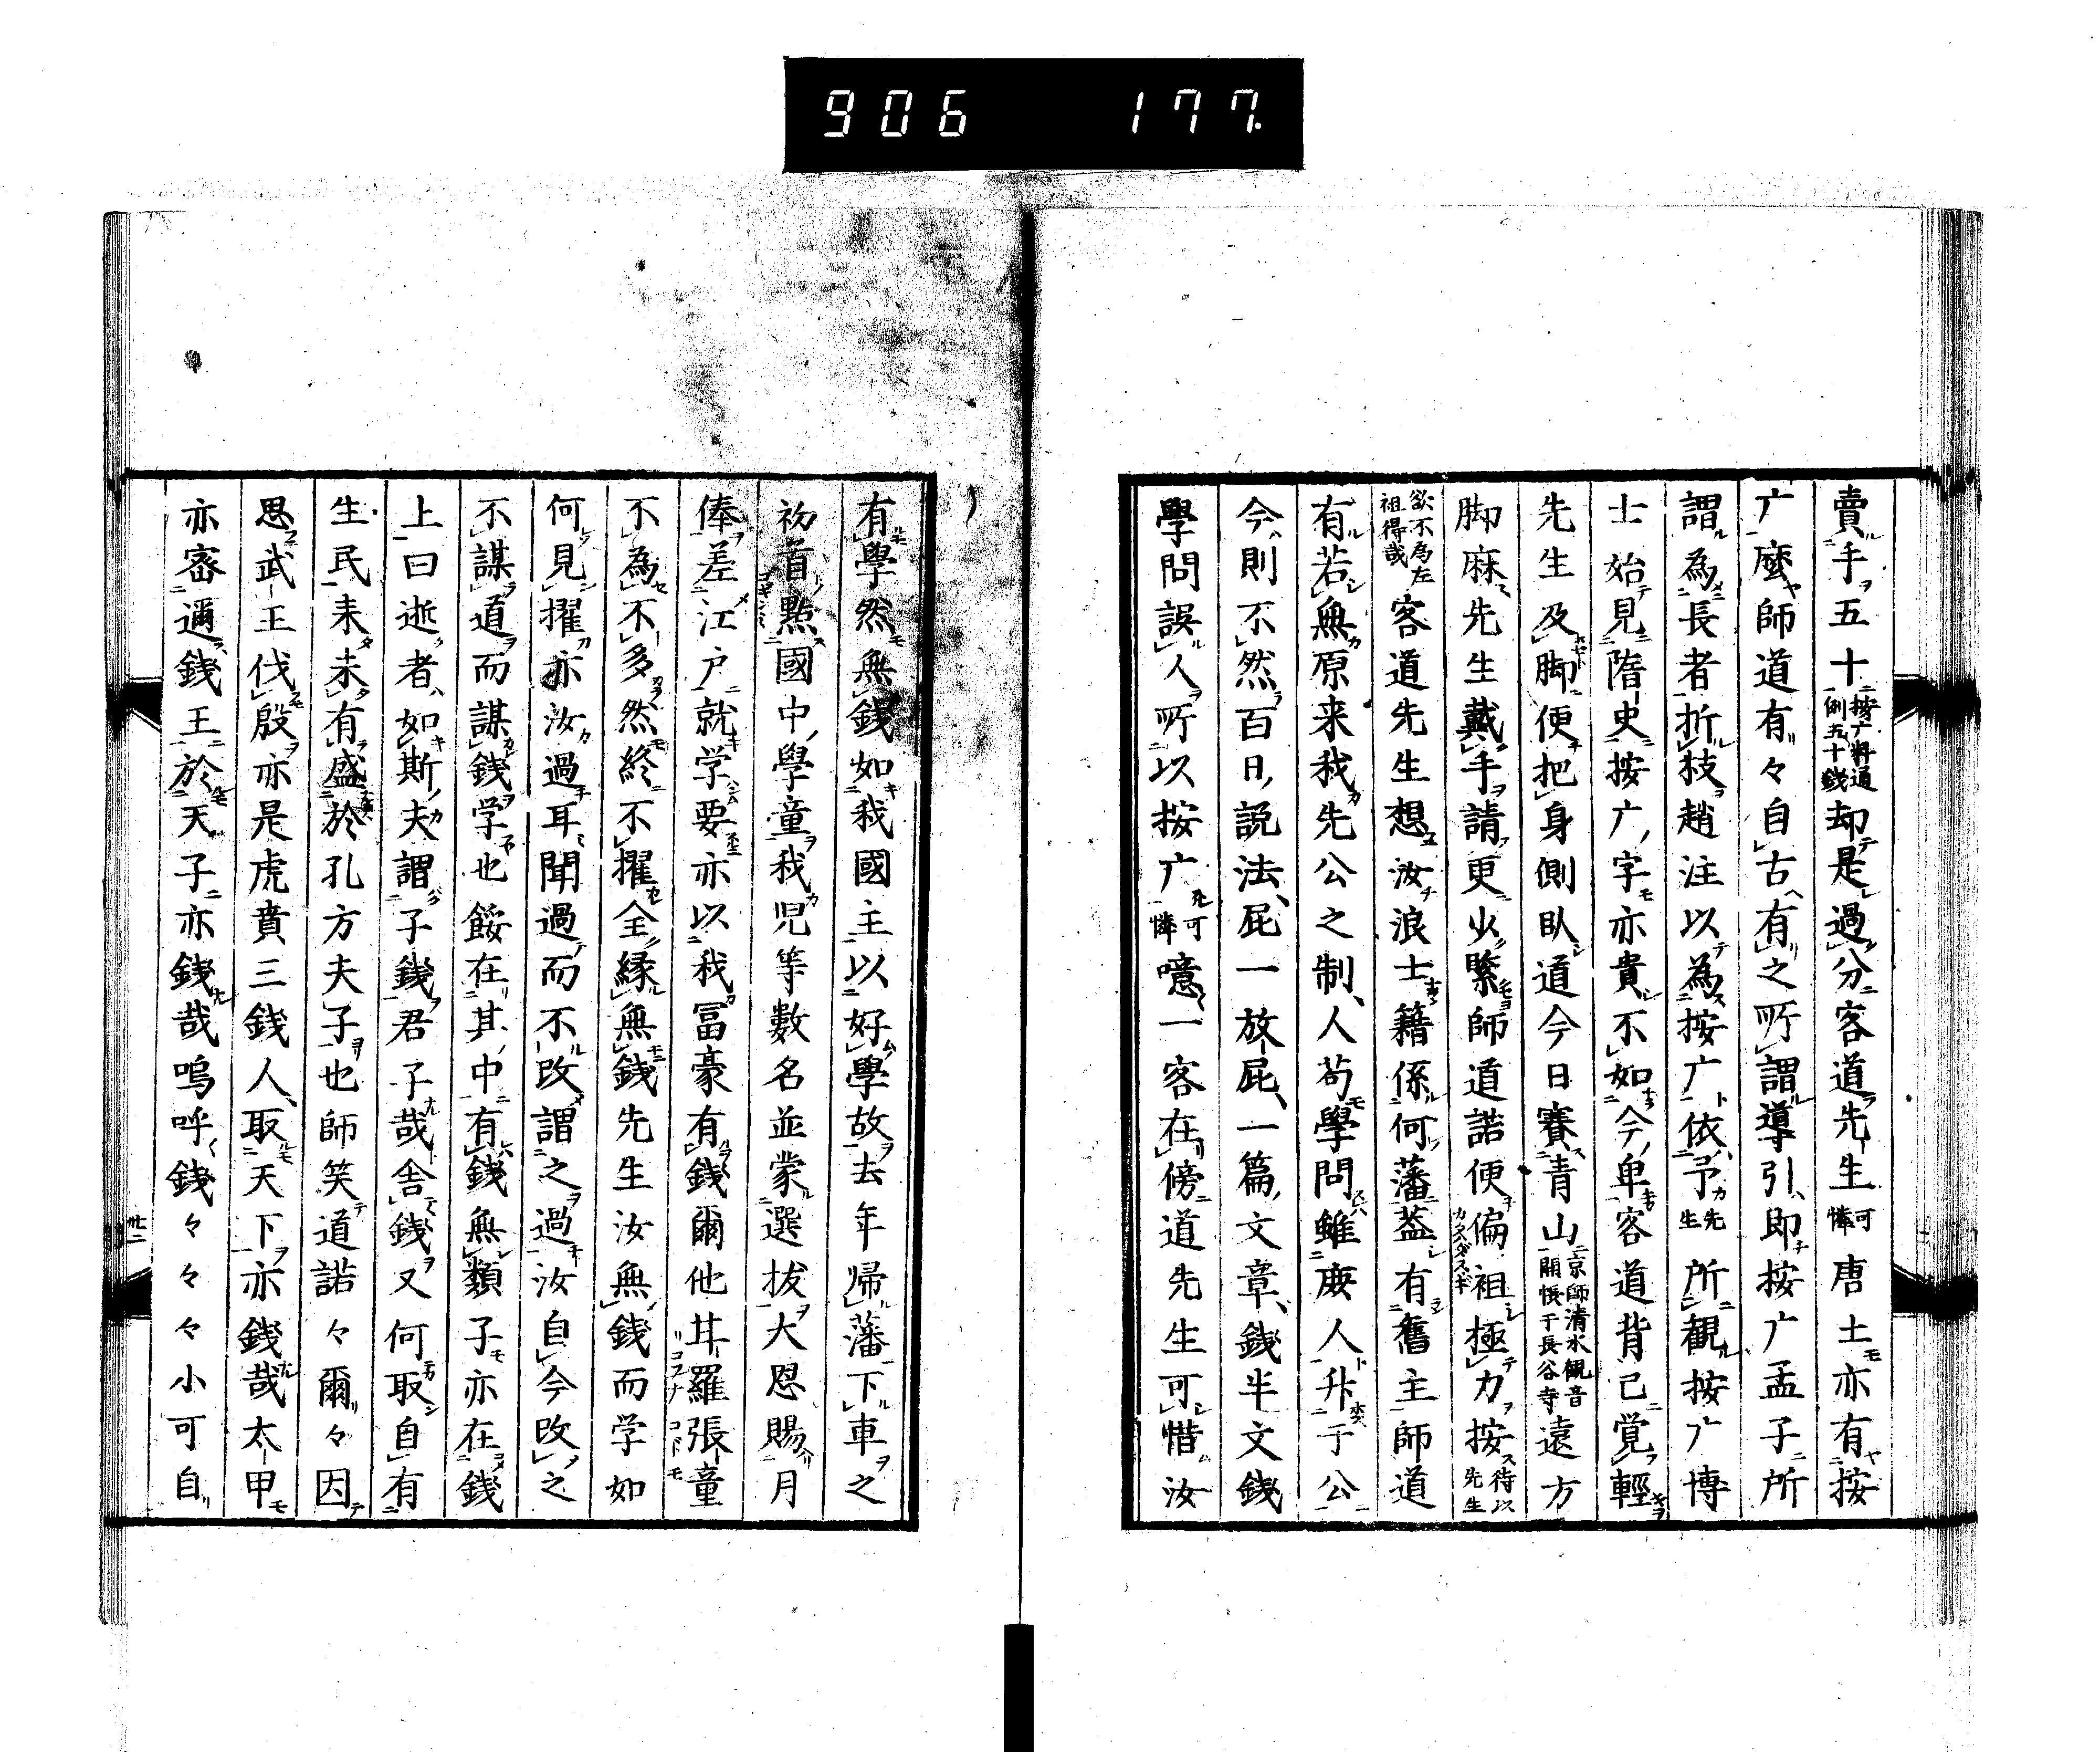 906 177
賣手五十按广料通例五十錢却是過分客道先生可憐唐土亦有按
广麼師道有々自古有之所謂導引即按广孟子所
謂為長者折枝趙注以為按广依予先生所観按广博
士始見隋史按广字亦貴不如今卑客道背已覚輕
先生及脚便把身側臥道今日賽青山京師清水観音開帳于長谷寺遠方
脚麻先生戴手請更少緊師道諾便偏袒極力按待以先生
欲不為左袒得哉客道先生想汝浪士籍係何藩蓋有舊主師道
有若無原来我先公之制人苟學問雖庚人升于公
今則不然百日説法屁一放屁一篇文章錢半文錢
學問誤人所以按广可憐噫一客在傍道先生可惜汝
有學然無錢如我國主以好學故去年帰藩下車之
初首點國中學童我児等數名並蒙選抜大恩賜月
俸差江戸就学要亦以我冨豪有錢爾他丼羅張童
不為不多然終不擢全縁無錢先生汝無錢而学如
何見擢亦汝過耳聞過而不改謂之過汝自今改之
不謀道而謀錢学也餒在其中有錢無類子亦在錢
上曰逝者如斯夫謂子錢君子哉舎錢又何取自有
生民来未有盛於孔方夫子也師笑道諾々爾々因
思武王伐殷亦是虎賁三錢人取天下亦錢哉太甲
亦密邇錢王於天子亦錢哉嗚呼錢々々々小可自
廿二